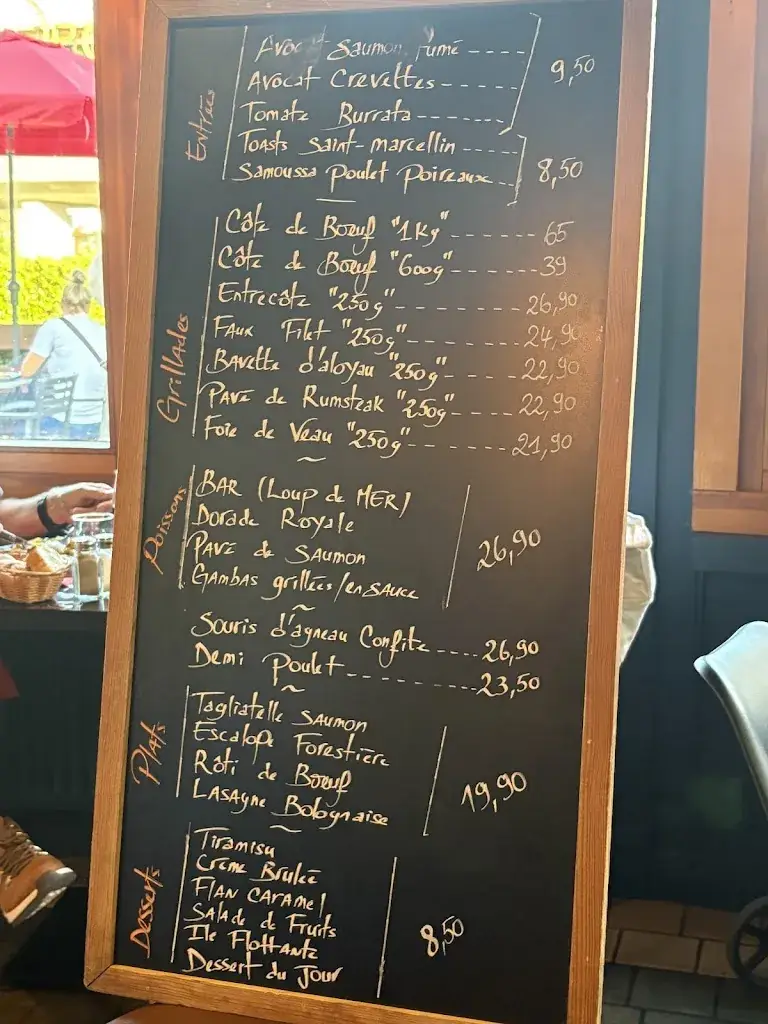 Entrées
Avocat Saumon fumé ----
Avocat Crevettes -----
Tomate Burrata -------
9,50
Toasts Saint-marcellin ----
Samoussa Poulet Poireaux ---
8,50
Grillades
Côte de Bœuf "1Kg" ------- 65
Côte de Bœuf "600g" ------- 39
Entrecôte "250g" -------- 26,90
Faux Filet "250g" -------- 24,90
Bavette d'aloyau "250g" ---- 22,90
Pavé de Rumsteak "250g" ---- 22,90
Foie de Veau "250g" ------- 21,90
~
Poissons
BAR (Loup de MER)
Dorade Royale
Pavé de Saumon
Gambas grillées/en sauce
26,90
~
Souris d'agneau Confite ---- 26,90
Demi Poulet --------- 23,50
~
Plats
Tagliatelle saumon
Escalope Forestière
Rôti de Bœuf
Lasagne Bolognaise
19,90
~
Desserts
Tiramisu
Crème Brulée
Flan caramel
Salade de Fruits
Ile Flottante
Dessert du Jour
8,50